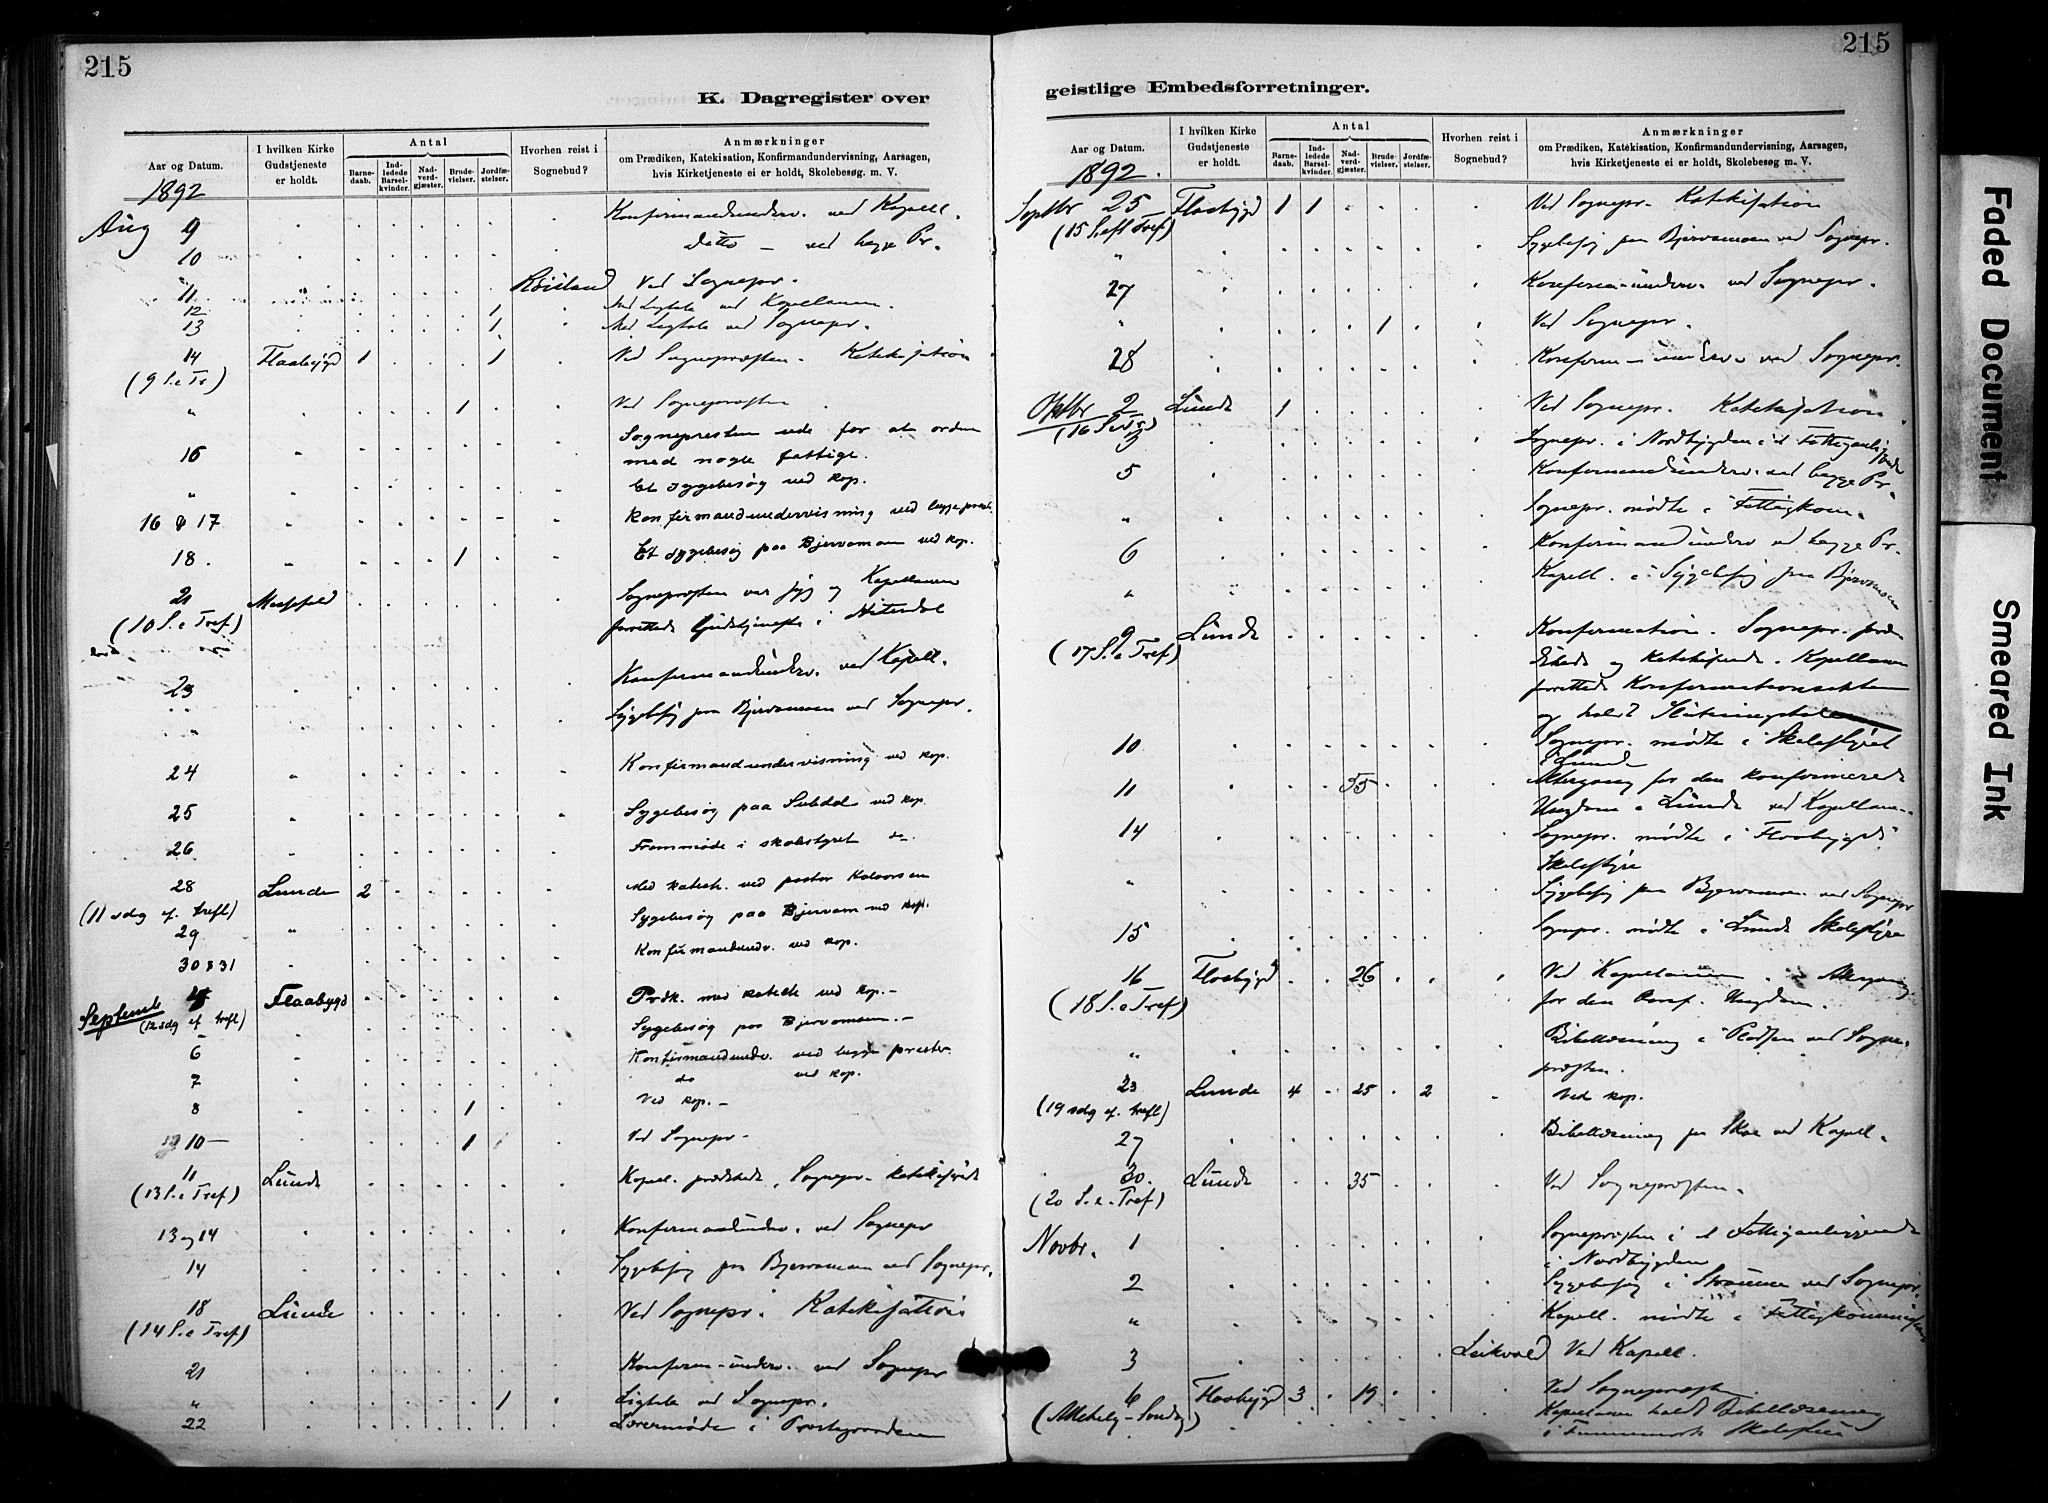 215
K. Dagregister over
Aar og Datum.
I hvilken Kirke Gudstjeneste er holdt.
Antal
Barne-daab.
Ind-ledede Barsel-kvinder.
Nad-verd-gjæster.
Brude-vielser.
Jordfæ-stelser.
Hvorhen reist i Sognebud?
Anmærkninger
om Prædiken, Katekisation, Konfirmandundervisning, Aarsagen,
hvis Kirketjeneste ei er holdt, Skolebesøg. m. V.
1892
Aug 9 Konfirmandunderv. ved Kapell.
10 Ditto — ved begge Pr.
11 Ved Sognepr.
12 1 Med Ligtale ved Kapellanen.
13 1 Med Ligtale ved Sognepr.
14 Flaabygd 1 1 Ved Sognepræsten. Katekisation
(9 S. e Tr)
" 1 Ved Sognepræsten
15 " Sognepresten ude for at ordne
med nogle fattige.
" " Et sygebesøg ved kap.
16 & 17 " Konfirmandundervisning ved begge prest.
18. " 1 Et sygebesøg paa Bjervamoen ved kap.
21 Sognepræsten var syg og Kapellanen
(10 S. e Tref.) forrettede Gudstjeneste i Hiterdal
23 Konfirmandunderv. ved Kapell.
" Sygebesøg paa Bjervamoen ved Sognepr.
24 " Konfirmandundervisning ved kap.
25 " Sygebesøg paa ved kap.
26 " Fremmøde i skolestyret do.
28 Lunde 2 Med katek. ved pastor
(11 sdg ef. trefl) Sygebesøg paa Bjervam ved kap.
29 "
30 & 31 " Konfirmandundv. ved kap.
Septembr 4 Flaabygd Præk. med katek ved kap. -
(12 sdg ef. trefl) Sygebesøg paa Bjervamoen. -
6 Konfirmandundv. ved begge prester.
7 do ved kap.
8 1 Ved kap. -
10 — 1 Ved Sognepr -
11 Lunde Kapell. prædikede, Sognepr. katekiserede
(13 S. e Tref.)
13 og 14 Konfirmandunderv. ved Sognepr
14 Sygebesøg paa Bjervamoen ved Sognepr.
18 Lunde Ved Sognepr. Katekisation
(14 S. e Tref.)
21 Konfirm-underv. ved Sognepr
" 1 Ligtale ved Sognepr.
22 Lærermøde i Prestegaarden
215
geistlige Embedsforretninger.
Aar og Datum.
I hvilken Kirke Gudstjeneste er holdt.
Antal
Barne-daab.
Ind-ledede Barsel-kvinder.
Nad-verd-gjæster.
Brude-vielser.
Jordfæ-stelser.
Hvorhen reist i Sognebud?
Anmærkninger
om Prædiken, Katekisation, Konfirmandundervisning, Aarsagen,
hvis Kirketjeneste ei er holdt, Skolebesøg m. V.
1892.
Septbr 25 Flaabygd 1 1 Ved Sognepr. Katekisation
(15 S. eft Tref)
" Sygebesøg paa Bjervamoen ved Sognepr.
27 Konfirm-underv. ved Sognepr.
" 1 Ved Sognepr.
28 Konfirm-underv. ved Sognepr.
2 Lunde 1 Ved Sognepr. Katekisation.
3 Sognepr. i Nordbygden i
5 Konfirmandunderv. ved begge Pr.
" Sognepr. mødte i Fattigkom.
6 Konfirmandunderv ved begge Pr.
" Kapell. i Sygebesøg paa Bjervamoen
9 Lunde Konfirmation. Sognepr. præ-
(17 S. e Tref) dikede og katekiserede. Kapellanen
forrettede Konfirmationsakten
og holdt Slutningstalen
10 Sognepr. mødte i Skolestyret
i Lunde
11 55 Altergang for den konfirmerede
Ungdom i Lunde ved Kapellanen.
14 Sognepr. mødte i Flaabygds
Skolestyre
" Sygebesøg paa Bjervamoen ved Sognepr
15 Sognepr. mødte i Lunde Skolestyre
16 Flaabygd 26 Ved Kapellanen. Altergang
(18 S. e Tref) for den Conf. Ungdom.
" Bibellæsning i ved Sogne-
præsten.
23 Lunde 4 25 2 Ved kap.
(19 sdg ef. trefl)
27 Bibellæsning paa ved Kapell.
30. Lunde 35 Ved Sognepræsten.
(20 S. e. Tref)
Novbr. 1 Sognepræsten i et Fattiganliggende
i Nordbygden
2 Sygebesøg i ved Sognepr.
" Kapell. mødte i Fattigkommissionen
3 Ved Kapell.
6 Flaabygd 3 19 Ved Sognepræsten.
Kapellanen holdt Bibellæsning
i Skolehus
Faded Document
Smeared Ink